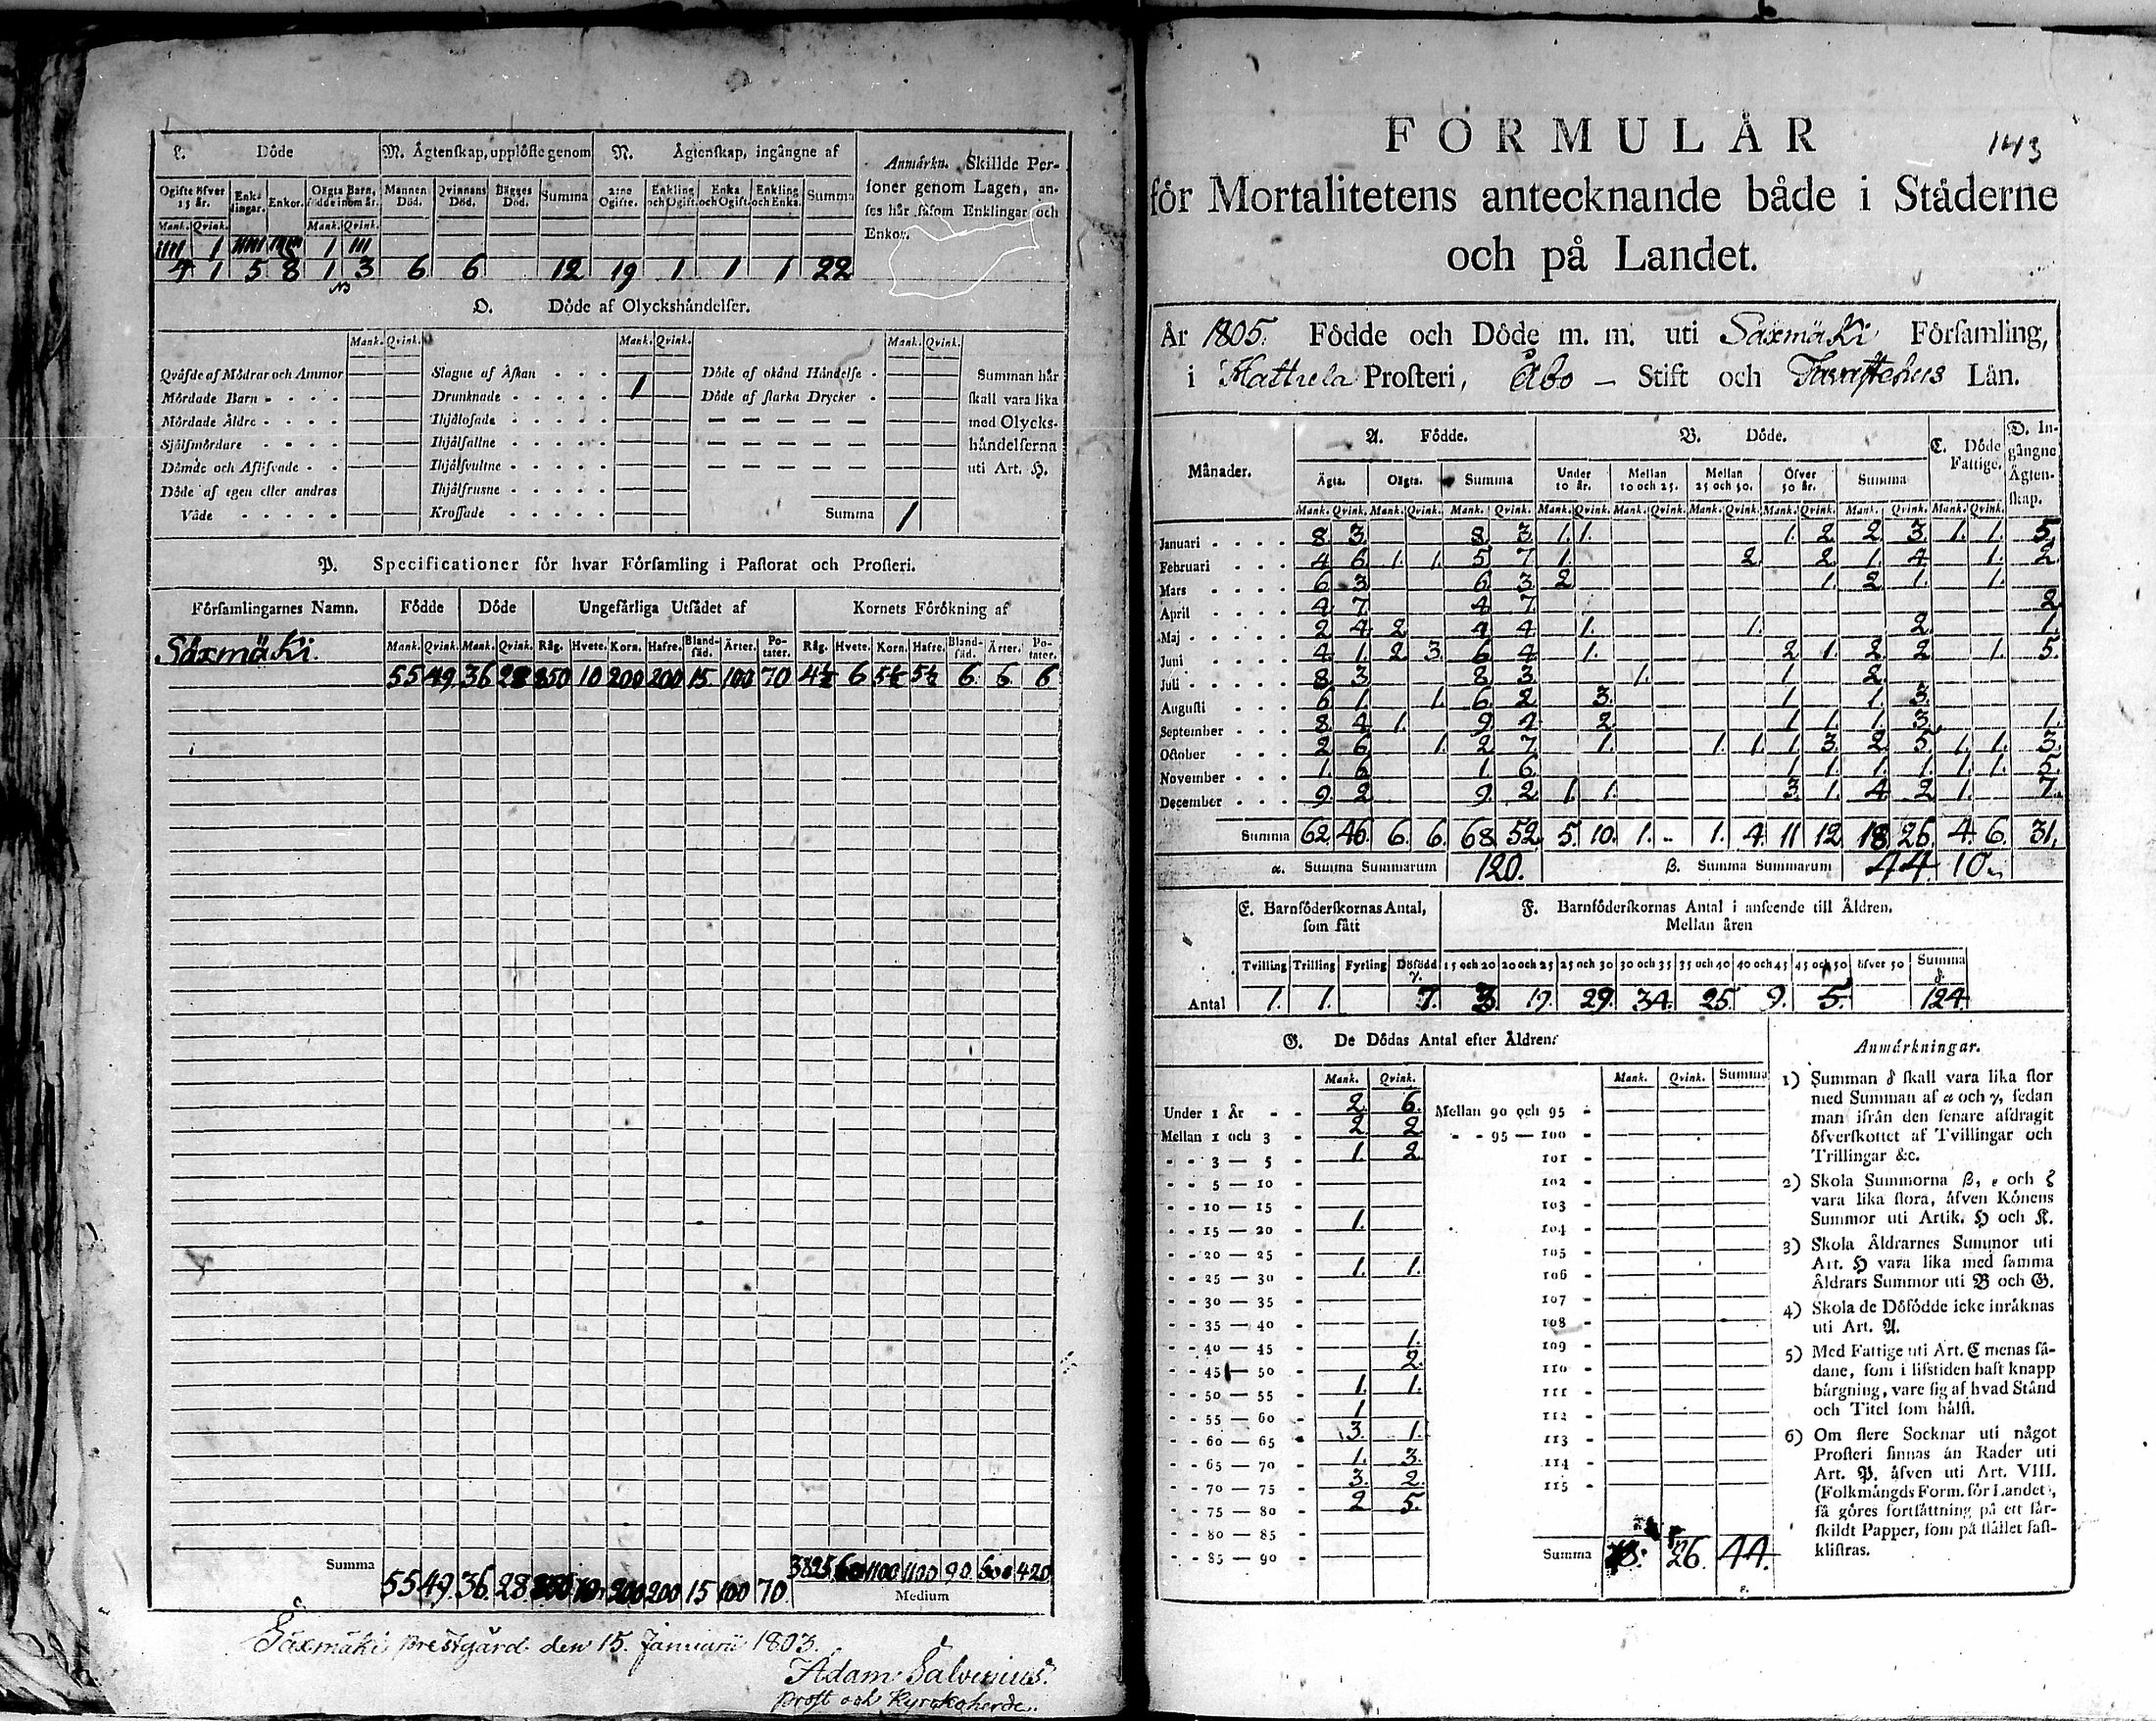 L. Döde
M. Ägtenskap, upplöste genom
N. Ägtenskap, ingångne af
Anmärkn. Skillde Per-
soner genom Lagen, an-
ses här såsom Enklingar och
Enkor.
Ogifte öfver 15 år. Enk-lingar. Enkor. Oägta Barn, födde inom år. Mannen Död. Qvinnans Död. Bägges Död. Summa 2:ne Ogifte. Enkling och Ogift. Enka och Ogift. Enkling och Enka. Summa
Mank. Qvink. Mank. Qvink.
IIII 1 IIIII IIIIIIII 1 III
4 1 5 8 1 3 6 6 12 19 1 1 1 22
O. Döde af Olyckshändelser.
Mank. Qvink. Mank. Qvink. Mank. Qvink.
Qväfde af Mödrar och Ammor Slagne af Åskan Döde af okänd Händelse Summan här
Mördade Barn Drunknade 1 Döde af starka Drycker skall vara lika
Mördade Äldre Ihjälosade med Olycks-
Självsmördare Ihjälfallne händelserna
Dömde och Aflifvade Ihjälsvultne uti Art. H.
Döde af egen eller andras Ihjälfrusne
Våde Krossade Summa 1
P. Specificationer för hvar Församling i Pastorat och Prosteri.
Församlingarnes Namn. Födde Döde Ungefärliga Utsädet af Kornets Förökning af
Mank. Qvink. Mank. Qvink. Råg. Hvete. Korn. Hafre. Bland-säd. Ärter. Po-tater. Råg. Hvete. Korn. Hafre. Bland-säd. Ärter. Po-tater.
Säxmäki. 55 49 36 28 850 10 200 200 15 100 70 4½ 6 5½ 5½ 6 6 6
Summa 55 49. 36. 28. 850 10 200 200 15 100 70. 3825 60 1100 1100 90. 600 420
Medium
Säxmäki prestgård den 15. Januarii 1803.
Adam Salvenius.
prost och Kyrckoherde.
143
FORMULÄR
för Mortalitetens antecknande både i Städerne
och på Landet.
År 1805. Födde och Döde m. m. uti Säxmäki Församling,
i Hattula Prosteri, Åbo - Stift och Tavastehus Län.
Månader. A. Födde. B. Döde. C. Döde Fattige. D. In-gångne Ägten-skap.
Ägta. Oägta. Summa Under 10 år. Mellan 10 och 25. Mellan 25 och 50. Öfver 50 år. Summa
Mank. Qvink. Mank. Qvink. Mank. Qvink. Mank. Qvink. Mank. Qvink. Mank. Qvink. Mank. Qvink. Mank. Qvink. Mank. Qvink.
Januari 8 3 8 3 1. 1. 1. 2 2 3 1. 1. 5
Februari 4 6 1. 1. 5 7 1. 2 2 1. 4 1. 2
Mars 6 3 6 3 2 1. 2 1. 1.
April 4 7 4 7 2
Maj 2 4 2 4 4 1. 1. 2 1.
Juni 4 1 2 3. 6 4 1. 2 1. 2 2 1. 5.
Juli 8 3 8 3 1. 1 2
Augusti 6 1. 1. 6 2 3. 1 1. 3.
September 8 4 1. 9 4 2 1 1. 1. 3. 1.
October 2 6 1. 2 7 1. 1. 1. 1 3. 2 5. 1. 1. 3.
November 1. 6 1. 6. 1. 1. 1. 1. 1. 1. 5.
December 9. 2 9. 2 1. 1. 3. 1. 4. 2 1. 7.
Summa 62. 46. 6. 6. 68 52. 5. 10. 1. - 1. 4. 11 12. 18 26. 4. 6. 31.
α. Summa Summarum 120. β. Summa Summarum 44. 10.
E. Barnföderskornas Antal, som fått
F. Barnföderskornas Antal i anseende till Åldren.
Mellan åren
Tvilling Trilling Fyrling Dödfödd γ. 15 och 20 20 och 25 25 och 30 30 och 35 35 och 40 40 och 45 45 och 50 öfver 50 Summa δ.
Antal 1. 1. 7. 3 19. 29. 34. 25. 9. 5. 124.
G. De Dödas Antal efter Åldren:
Mank. Qvink. Mank. Qvink. Summa
Under 1 År 2. 6. Mellan 90 och 95
Mellan 1 och 3 2. 2 95 — 100
3 — 5 1. 2. 101
5 — 10 102
10 — 15 103
15 — 20 1. 104
20 — 25 105
25 — 30 1. 1. 106
30 — 35 107
35 — 40 108
40 — 45 1. 109
45 — 50 2. 110
50 — 55 1. 1. 111
55 — 60 1 112
60 — 65 3. 1. 113
65 — 70 1. 3. 114
70 — 75 3. 2. 115
75 — 80 2 5.
80 — 85
85 — 90 Summa 18. 26. 44.
ε.
Anmärkningar.
1) Summan δ skall vara lika stor
med Summan af α och γ, sedan
man ifrån den senare afdragit
öfverskottet af Tvillingar och
Trillingar &c.
2) Skola Summorna β, ε och ζ
vara lika stora, äfven Könens
Summor uti Artik. H och K.
3) Skola Åldrarnes Summor uti
Art. H vara lika med samma
Åldrars Summor uti B och G.
4) Skola de Dödfödde icke inräknas
uti Art. A.
5) Med Fattige uti Art. C menas så-
dane, som i lifstiden haft knapp
bärgning, vare sig af hvad Stånd
och Titel som hälst.
6) Om flere Socknar uti något
Prosteri finnas än Rader uti
Art. P. äfven uti Art. VIII.
(Folkmängds Form. för Landet),
så göres fortsättning på ett sär-
skildt Papper, som på stället fast-
klistras.